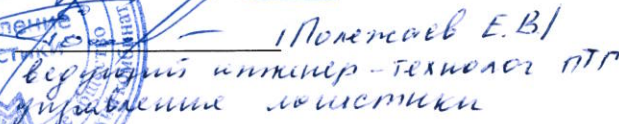 /Полежаев Е.В/
ведущий инженер-технолог ПТГ
управления логистики